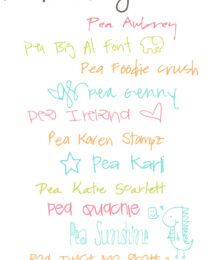 Pea Aubrey
Pea Big Al Font
Pea Foodie Crush
Pea Genny
Pea Ireland
Pea Karen Stampz
Pea Kari
Pea Katie Scarlett
Pea Quacnie
Pea Sunshine